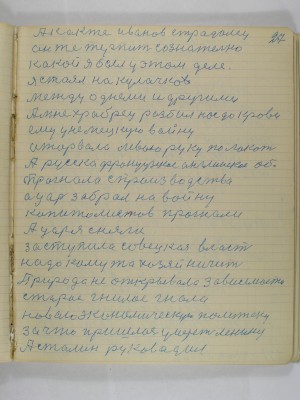 27
А как те иванов страдому
он те терпит сознателно
какой я вел у этом деле.
я стоял на кулачков
между одними и другими
А мне храбрец розбил нос до крови
ему у немецкую войну
оторвала левою руку по локот
А русска французкое английское об-
прогнала с производства
а цар забрал на войну
капитолистов прогнали
А царя сняли
заступила совецкая власт
надо кому та хозяйничит
Природа не открывала зависимости
старое гнилое гнали
новаю экономическую политику
за что пришлося умует ленину
А сталин руководил